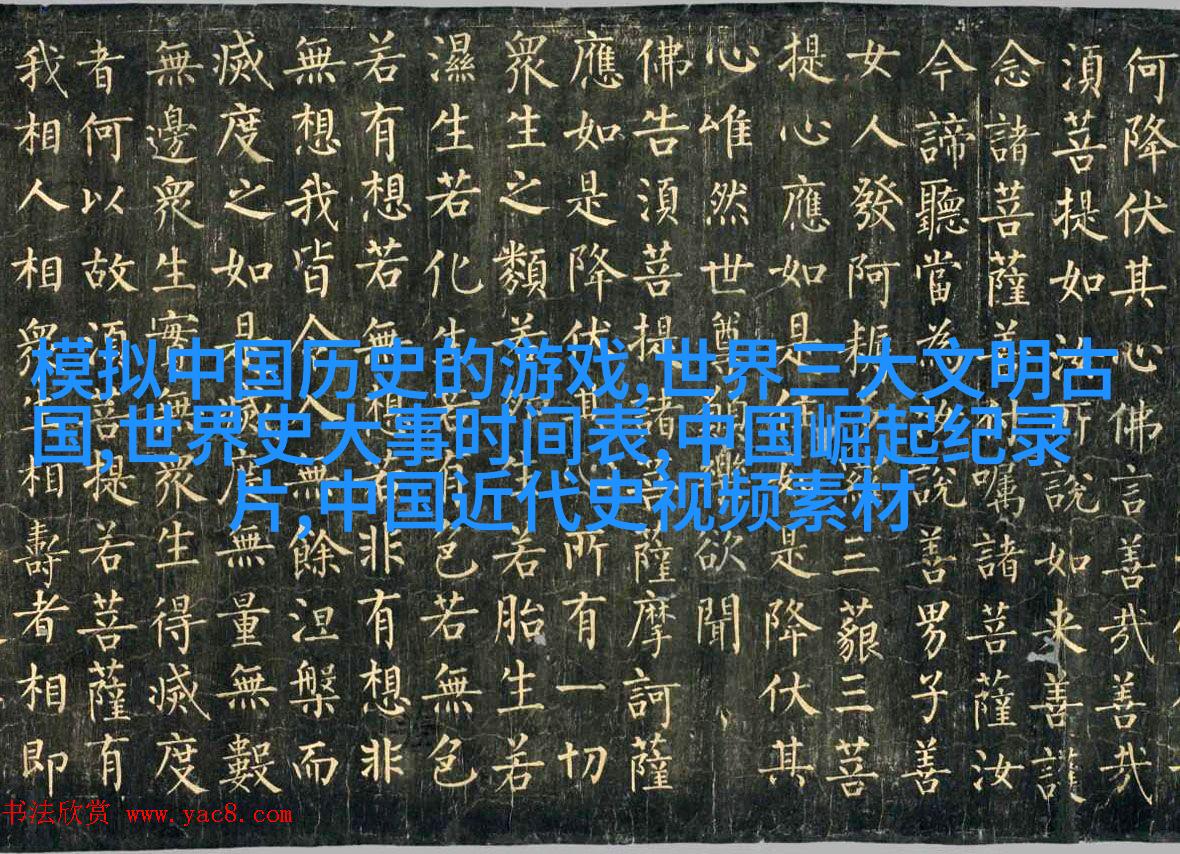 何降伏其心佛言善哉善哉
須菩提如汝所說如来善護
念諸菩薩善付囑諸菩薩汝
今諦聽當為汝說善男子善
女人發阿耨三藐三菩
提心應如是住如是降伏其
心唯然世尊願樂欲聞
佛告須菩提諸菩薩摩訶薩
應如是降伏其心所有一切
衆生之類若卵生若胎生若
濕生若化生若色若無色
若有想若無想若非有想非
無想我皆令入無餘涅槃而
滅度之如是滅度無量無數
無邊衆生實無衆生得滅度
者何以故須菩提若菩薩有
我相人相衆生相壽者相即
模拟中国历史的游戏,世界三大文明古
国,世界史大事时间表,中国崛起纪录
片,中国近代史视频素材
书法欣赏 www.yac8.com